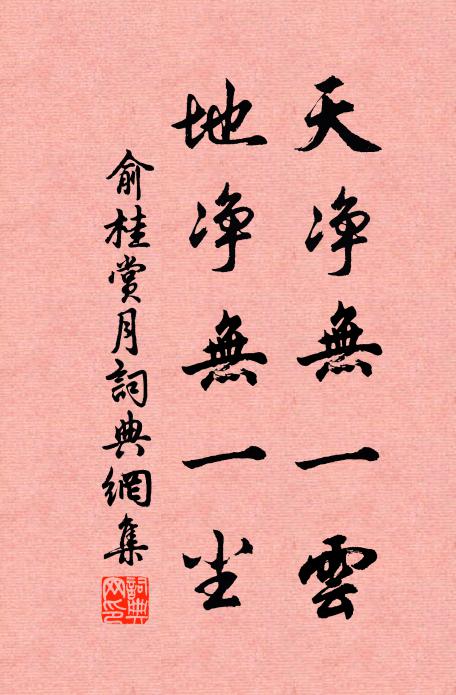 天净無一雲
地净無一尘
俞桂賞月詞典網集
詞典
网印